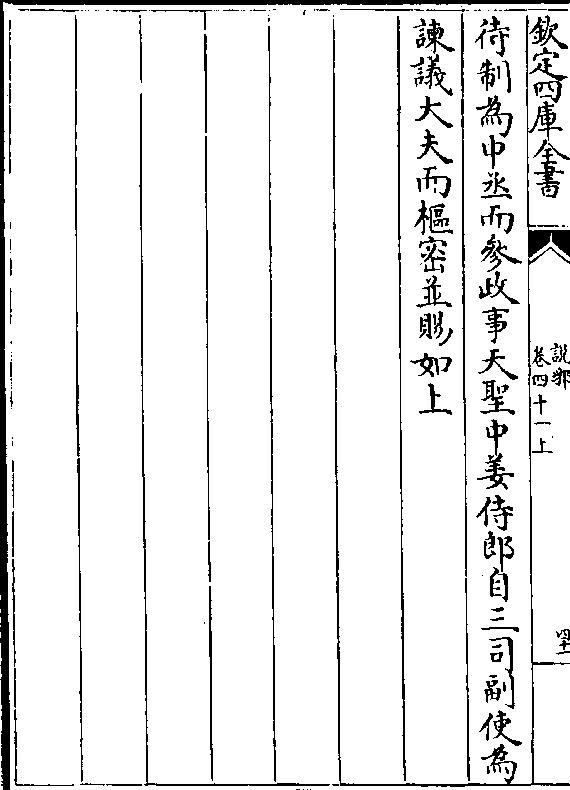 欽定四庫全書
說郛
卷四十一上
四十一
待制為中丞而參政事天聖中姜侍郎自三司副使為
諫議大夫而樞密並賜如上